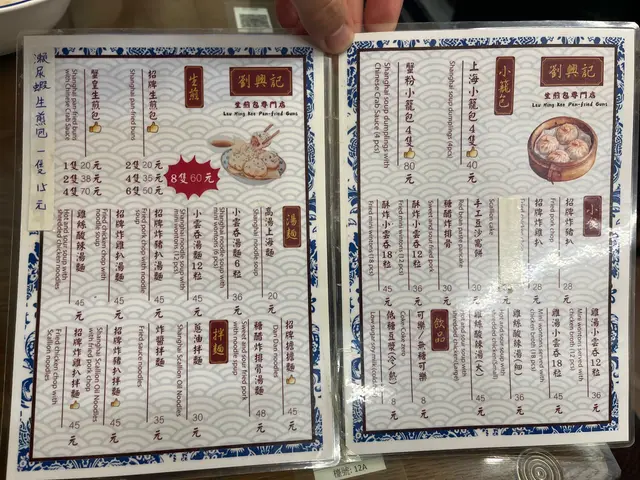 瀨尿蝦生煎包 一隻15元
劉興記
生煎包專門店
Lau Hing Kee Pan-fried Buns
生煎
招牌生煎包
Shanghai pan-fried buns
2隻 20元
4隻 35元
6隻 50元
8隻 60元
蟹皇生煎包
Shanghai pan-fried buns with Chinese Crab Sauce
1隻 20元
2隻 38元
4隻 70元
湯麵
高湯上海麵
Shanghai noodle soup
20元
小雲吞湯麵6粒
Shanghai noodle soup with mini wontons (6 pcs)
36元
小雲吞湯麵12粒
Shanghai noodle soup with mini wontons (12 pcs)
45元
招牌炸豬扒湯麵
Fried pork chop with noodle soup
45元
招牌炸雞扒湯麵
Fried chicken chop with noodle soup
45元
雞絲酸辣湯麵
Hot and sour soup with shredded chicken noodles
45元
招牌擔擔麵
Dan Dan noodles
45元
糖醋炸排骨湯麵
Sweet and sour fried pork with noodle soup
48元
拌麵
蔥油拌麵
Shanghai Scallion Oil Noodles
30元
炸醬拌麵
Fried sauce noodles
35元
招牌炸豬扒拌麵
Shanghai Scallion Oil Noodles with fried pork chop
45元
招牌炸雞扒拌麵
Fried chicken chop with Scallion noodles
45元
劉興記
生煎包專門店
Lau Hing Kee Pan-fried Buns
小籠包
上海小籠包4隻
Shanghai soup dumplings (4 pcs)
40元
蟹粉小籠包4隻
Shanghai soup dumplings with Chinese Crab Sauce (4 pcs)
80元
招牌炸豬扒
Fried pork chop
28元
招牌炸雞扒
28元
Scallion cake
手工豆沙窩餅
Red bean paste pancake
30元
糖醋炸排骨
Sweet and sour fried pork
36元
酥炸小雲吞12粒
Fried mini wontons (12 pcs)
36元
酥炸小雲吞18粒
Fried mini wontons (18 pcs)
45元
雞湯小雲吞12粒
Mini wontons served with chicken broth (12 pcs)
36元
雞湯小雲吞18粒
Mini wontons served with
45元
雞絲酸辣湯(細)
36元
雞絲酸辣湯(大)
45元
飲品
可樂/無糖可樂
Coke/Coke zero
8元
低糖豆漿(冷/熱)
8元
樓號: 12A